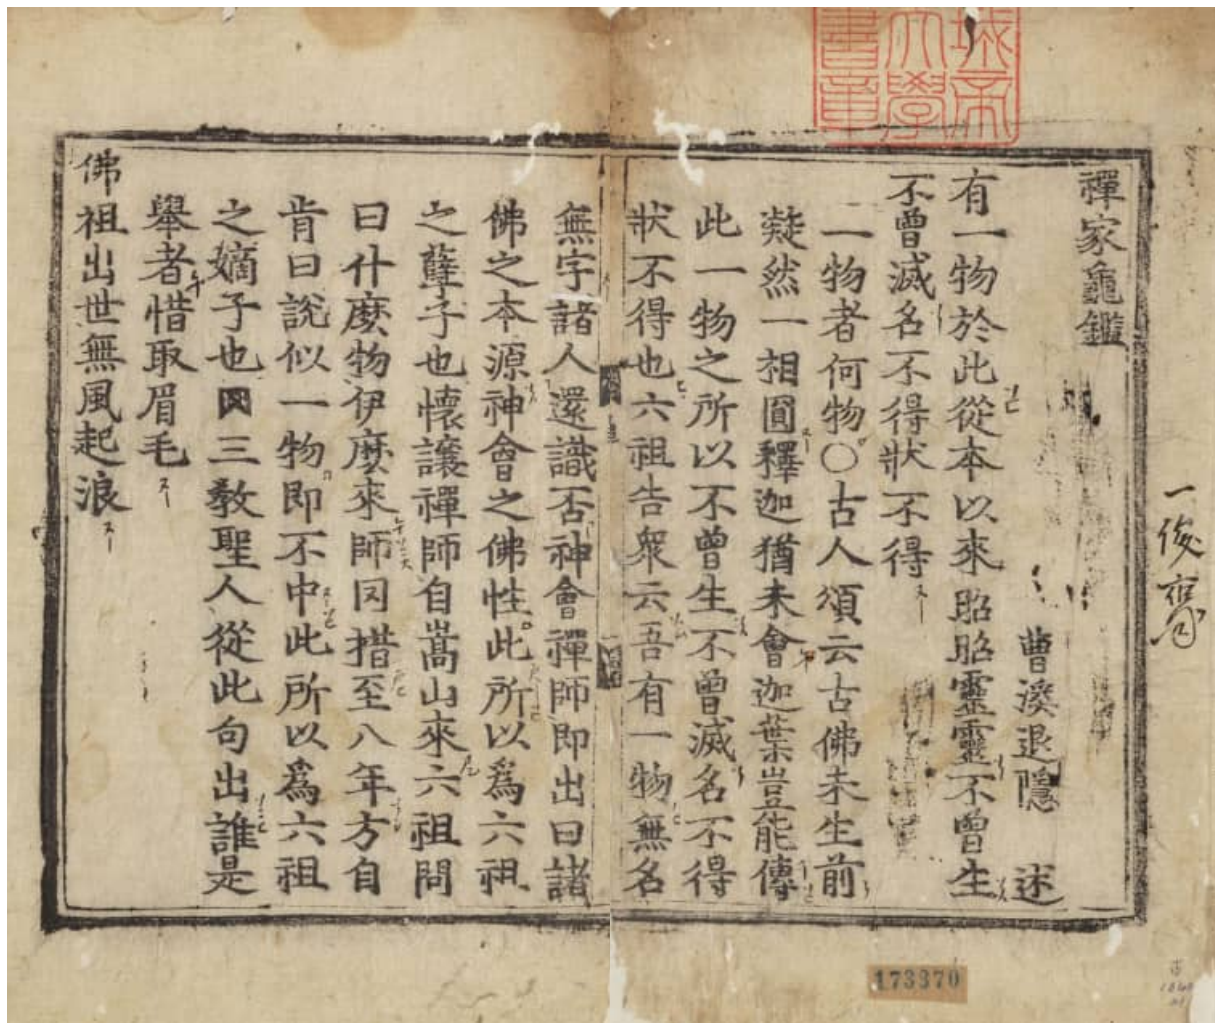 禪家龜鑑
曹溪退隱 述
有一物於此從本以來昭昭靈靈不曾生
不曾滅名不得狀不得
一物者何物〇古人頌云古佛未生前
凝然一相圓釋迦猶未會迦葉豈能傳
此一物之所以不曾生不曾滅名不得
狀不得也六祖告衆云吾有一物無名
無字諸人還識否神會禪師即出曰諸
佛之本源神會之佛性此所以爲六祖
之孽子也懷讓禪師自嵩山來六祖問
曰什麽物伊麽來師罔措至八年方自
肯曰說似一物即不中此所以爲六祖
之嫡子也 三教聖人從此句出誰是
舉者惜取眉毛
佛祖出世無風起浪
173370